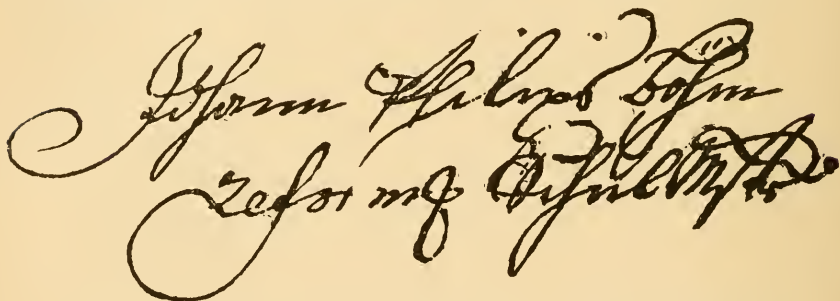 Johann Philips Böhm
reform. Schulm̅str.